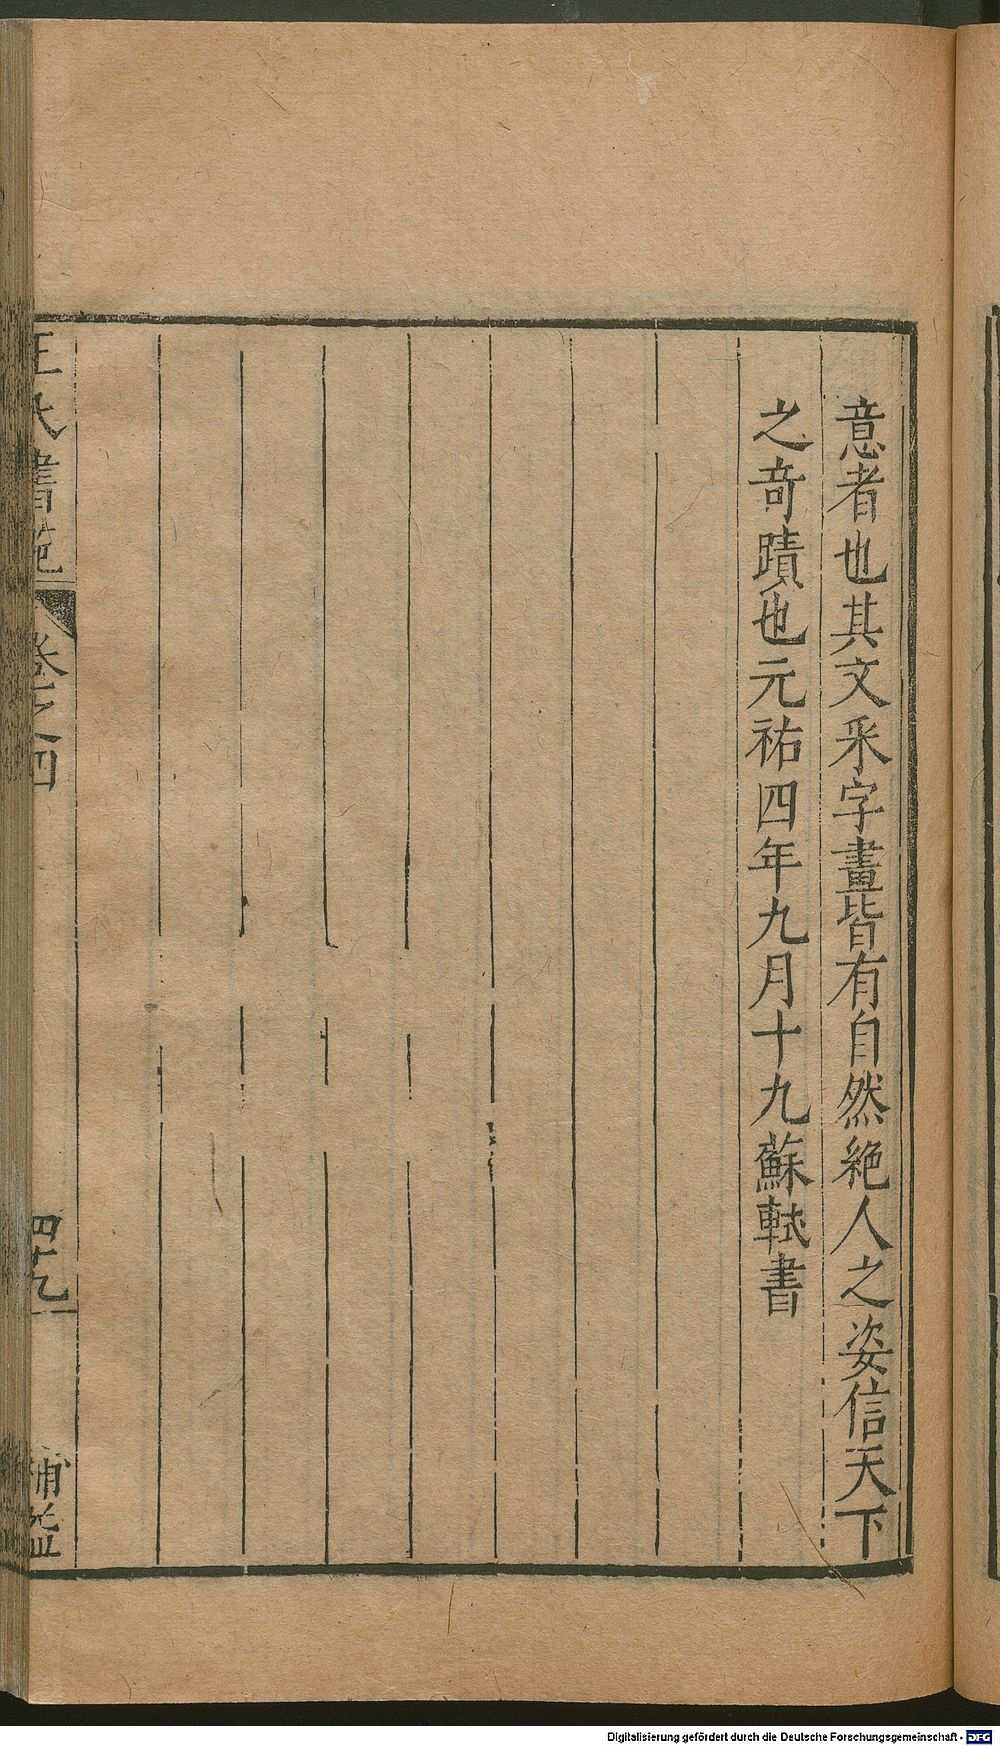 意者也其文采字畫皆有自然絶人之姿信天下
之竒蹟也元祐四年九月十九蘇軾書
王氏書苑
卷之四
四十九
補益
Digitalisierung gefördert durch die Deutsche Forschungsgemeinschaft - DFG